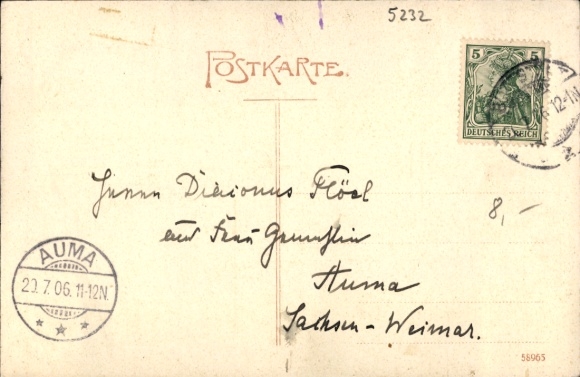 5232
POSTKARTE.
5 5
DEUTSCHES REICH
12-1N
Herrn Diaconus
und Frau Gemahlin
8,-
Auma
Sachsen-Weimar.
AUMA
20.7.06.11-12N.
56965